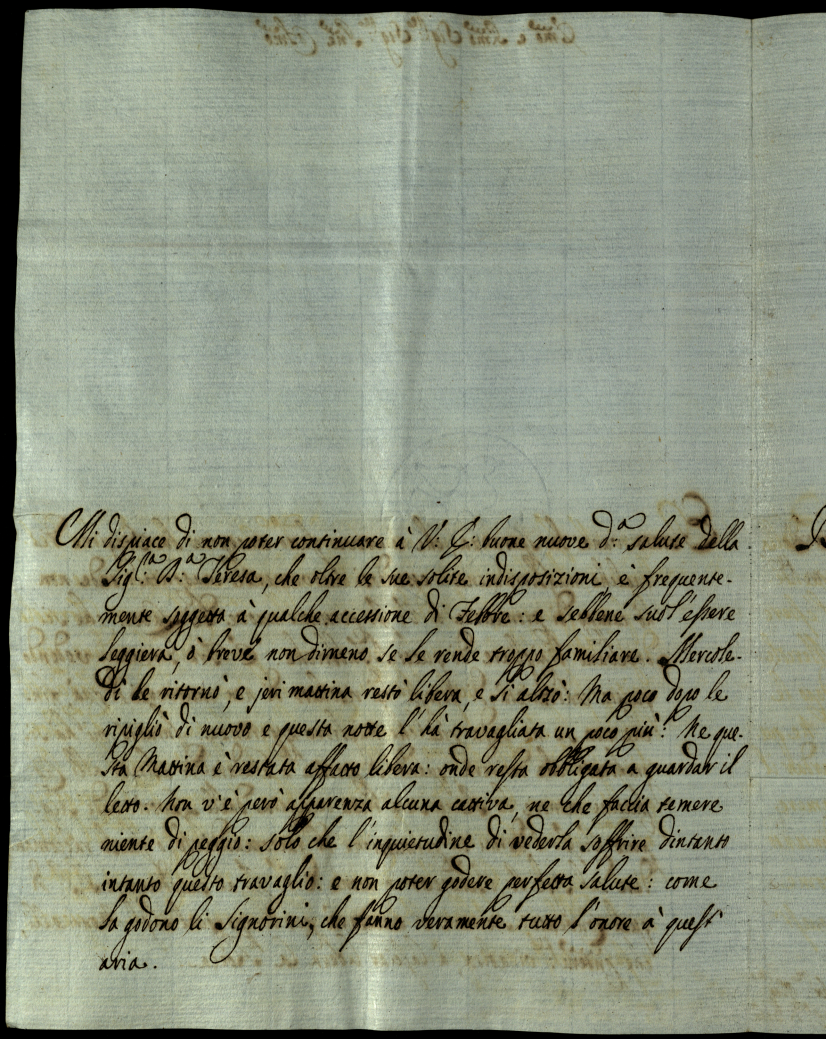 Mi dispiace di non poter continuare à V: E: buone nuove d:ª salute della
Sig:ʳª D:ª Teresa, che oltre le sue solite indisposizioni, è frequente-
mente soggetta à qualche accessione di Febbre: e sebbene suol'essere
leggiera, ò breve nondimeno se le rende troppo familiare. Mercole-
dì le ritornò, e jeri mattina restò libera, e si alzò: Ma poco dopo le
ripigliò di nuovo e questa notte l'hà travagliata un poco più: Ne que-
sta Mattina è restata affatto libera: onde resta obbligata a guardar il
letto. Non v'è però apparenza alcuna cattiva, ne che faccia temere
niente di peggio: solo che l'inquietudine di vederla soffrire dintanto
intanto questo travaglio: e non poter godere perfetta salute: come
la godono li Signorini, che fanno veramente tutto l'onore à quest'
aria.